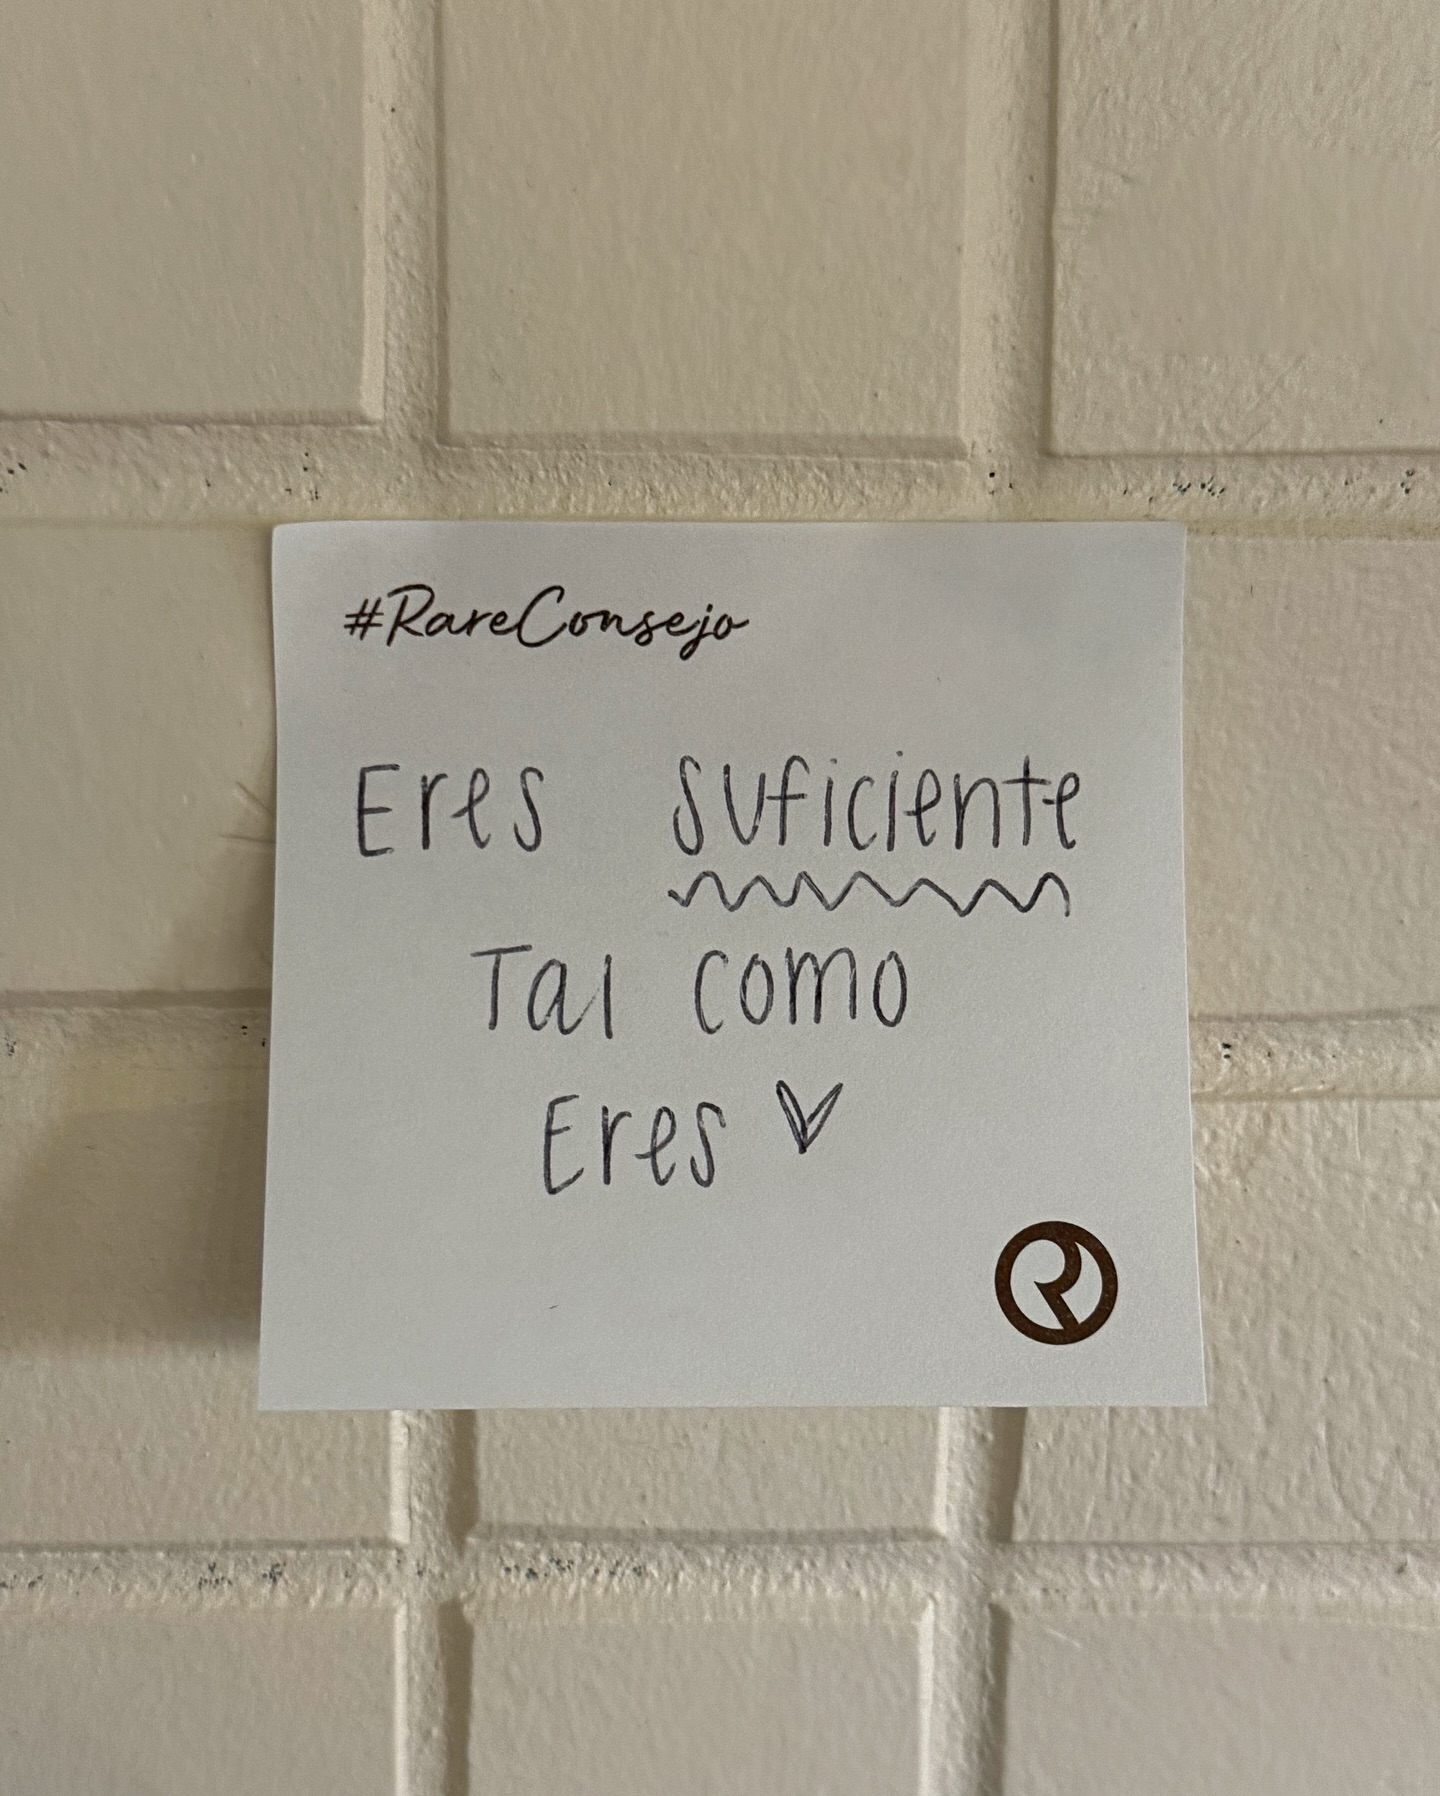 #RareConsejo
Eres suficiente
Tal como
Eres ♥
R